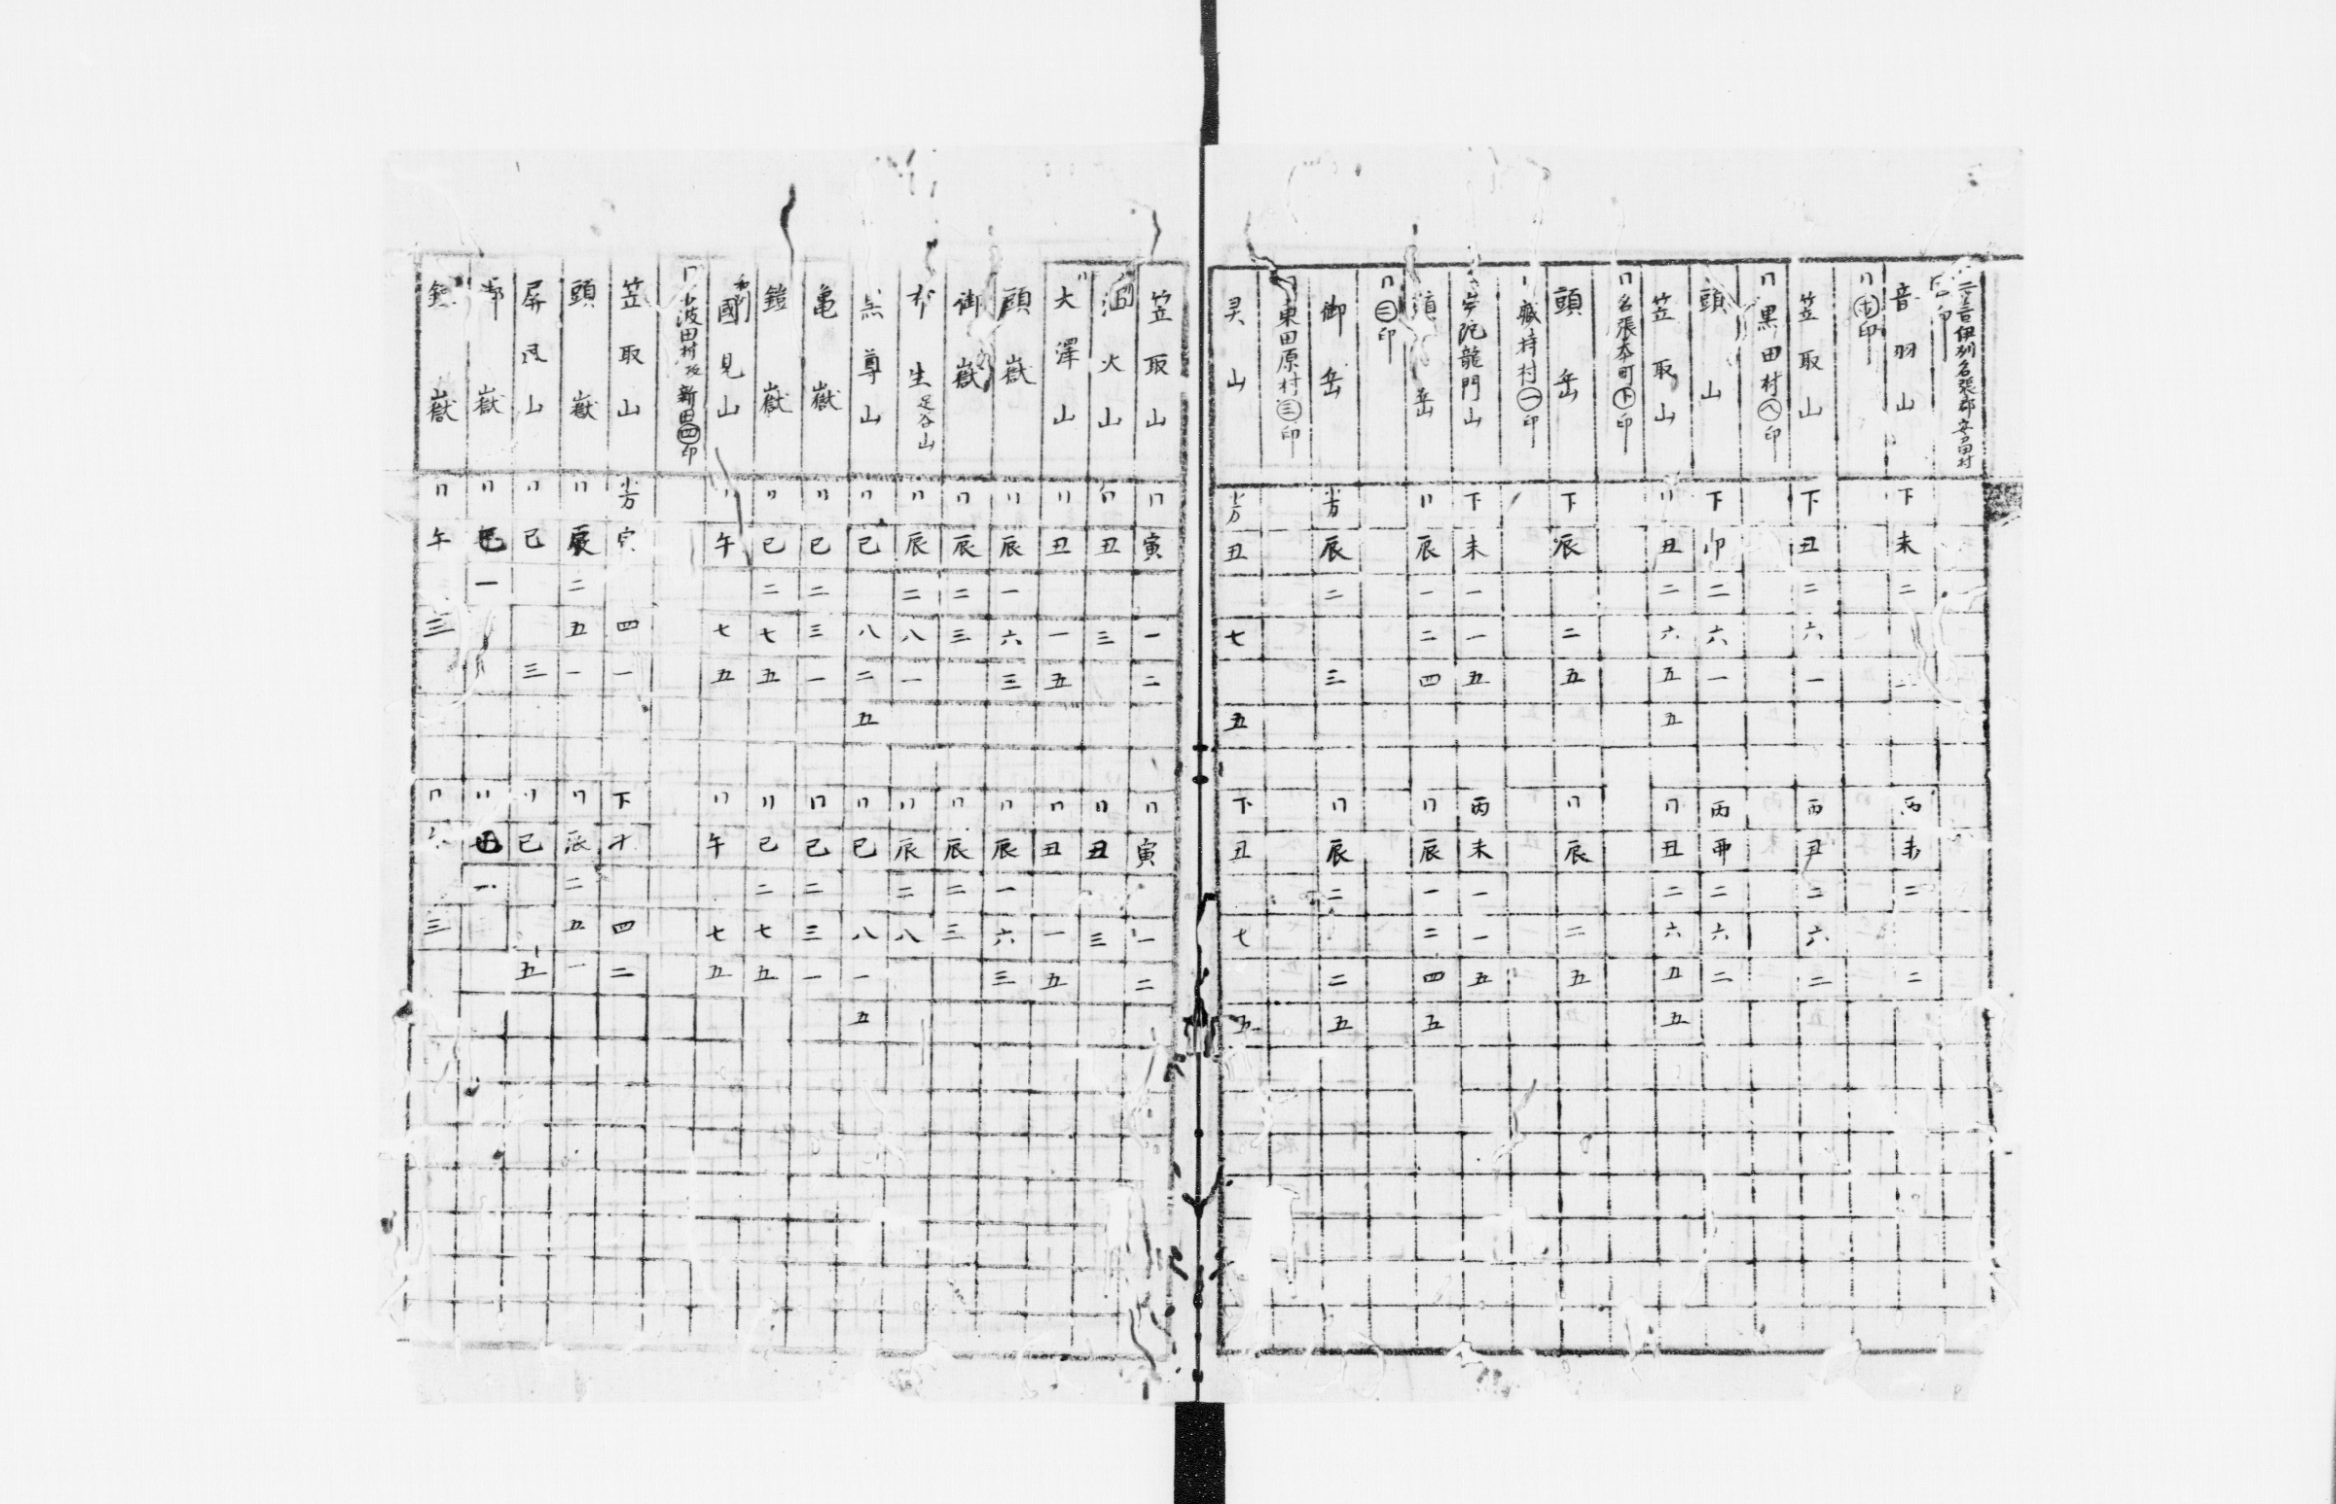 伊列名張郡安部田村
音羽山 下 未 二 丙 未 二 二
〃 印
笠取山 下 丑 二 六 一 丙 丑 二 六 二
〃 黒田村 八 印
頭山 下 卯 二 六 一 丙 卯 二 六 二
笠取山 〃 丑 二 六 五 五 〃 丑 二 六 五 五
〃 名張本町 下 印
頭岳 下 辰 二 五 〃 辰 二 五
〃 蔵持村 一 印
陀龍門山 下 未 一 一 五 丙 未 一 一 五
岳 〃 辰 一 二 四 〃 辰 一 二 四 五
〃 三 印
御岳 辰 二 三 〃 辰 二 二 五
〃 東田原村 三 印
灵山 丑 七 五 下 丑 七 五
笠取山 〃 寅 一 二 〃 寅 一 二
油火山 〃 丑 三 〃 丑 三
大澤山 〃 丑 一 五 〃 丑 一 五
頭嶽 〃 辰 一 六 三 〃 辰 一 六 三
御嶽 〃 辰 二 三 〃 辰 二 三
生足谷山 〃 辰 二 八 一 〃 辰 二 八
尊山 〃 巳 八 二 五 〃 巳 八 一 五
亀嶽 〃 巳 二 三 一 〃 巳 二 三 一
鎧嶽 〃 巳 二 七 五 〃 巳 二 七 五
國見山 〃 午 七 五 〃 午 七 五
〃 小波田村 新田 四 印
笠取山 寅 四 一 下 四 二
頭嶽 〃 辰 二 五 一 〃 辰 二 五 一
屏风山 〃 巳 三 〃 巳 五
嶽 〃 一 〃 一
嶽 〃 午 三 〃 三